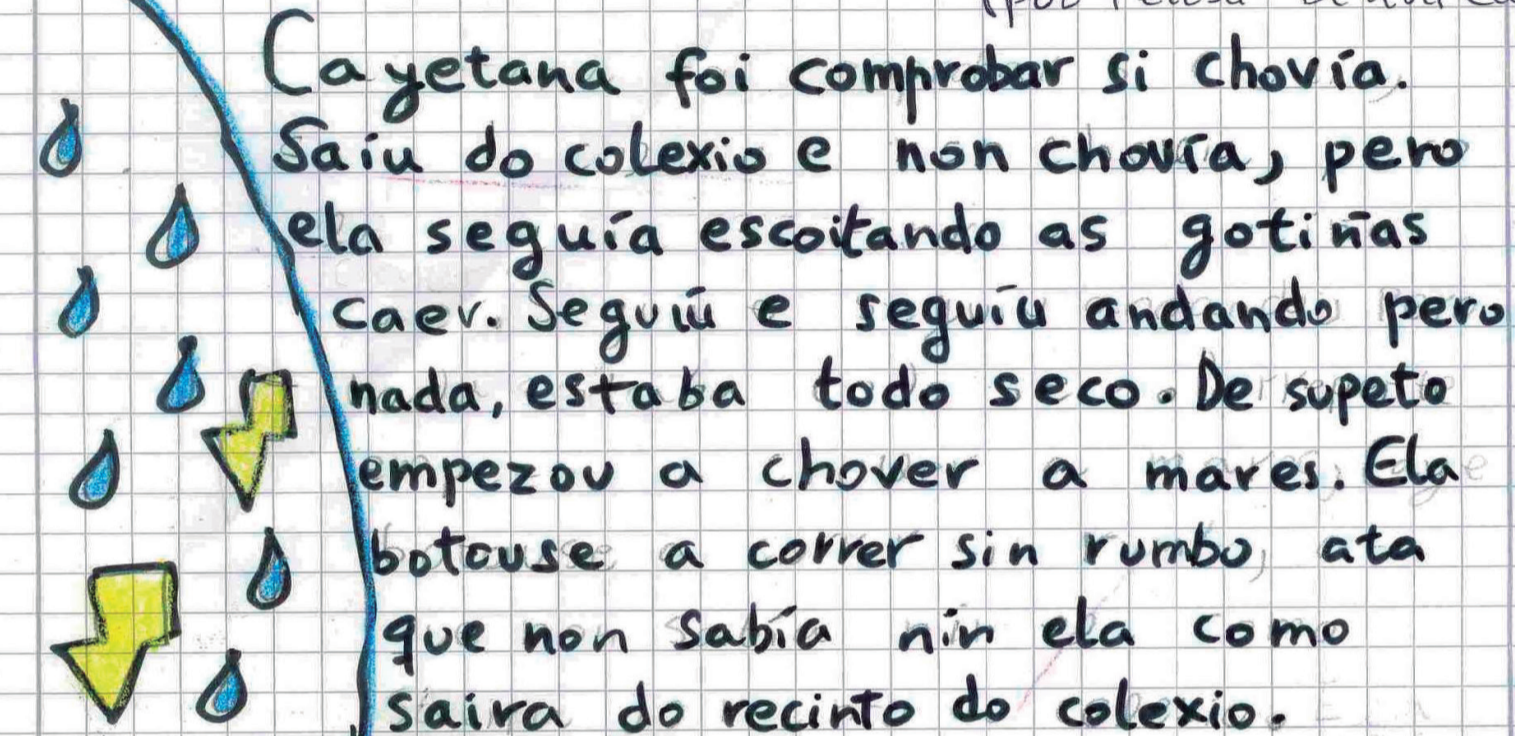 Cayetana foi comprobar si chovía.
Saíu do colexio e non chovía, pero
ela seguía escoitando as gotiñas
caer. Seguíu e seguíu andando pero
nada, estaba todo seco. De supeto
empezou a chover a mares. Ela
botouse a correr sin rumbo, ata
que non sabía nin ela como
saira do recinto do colexio.